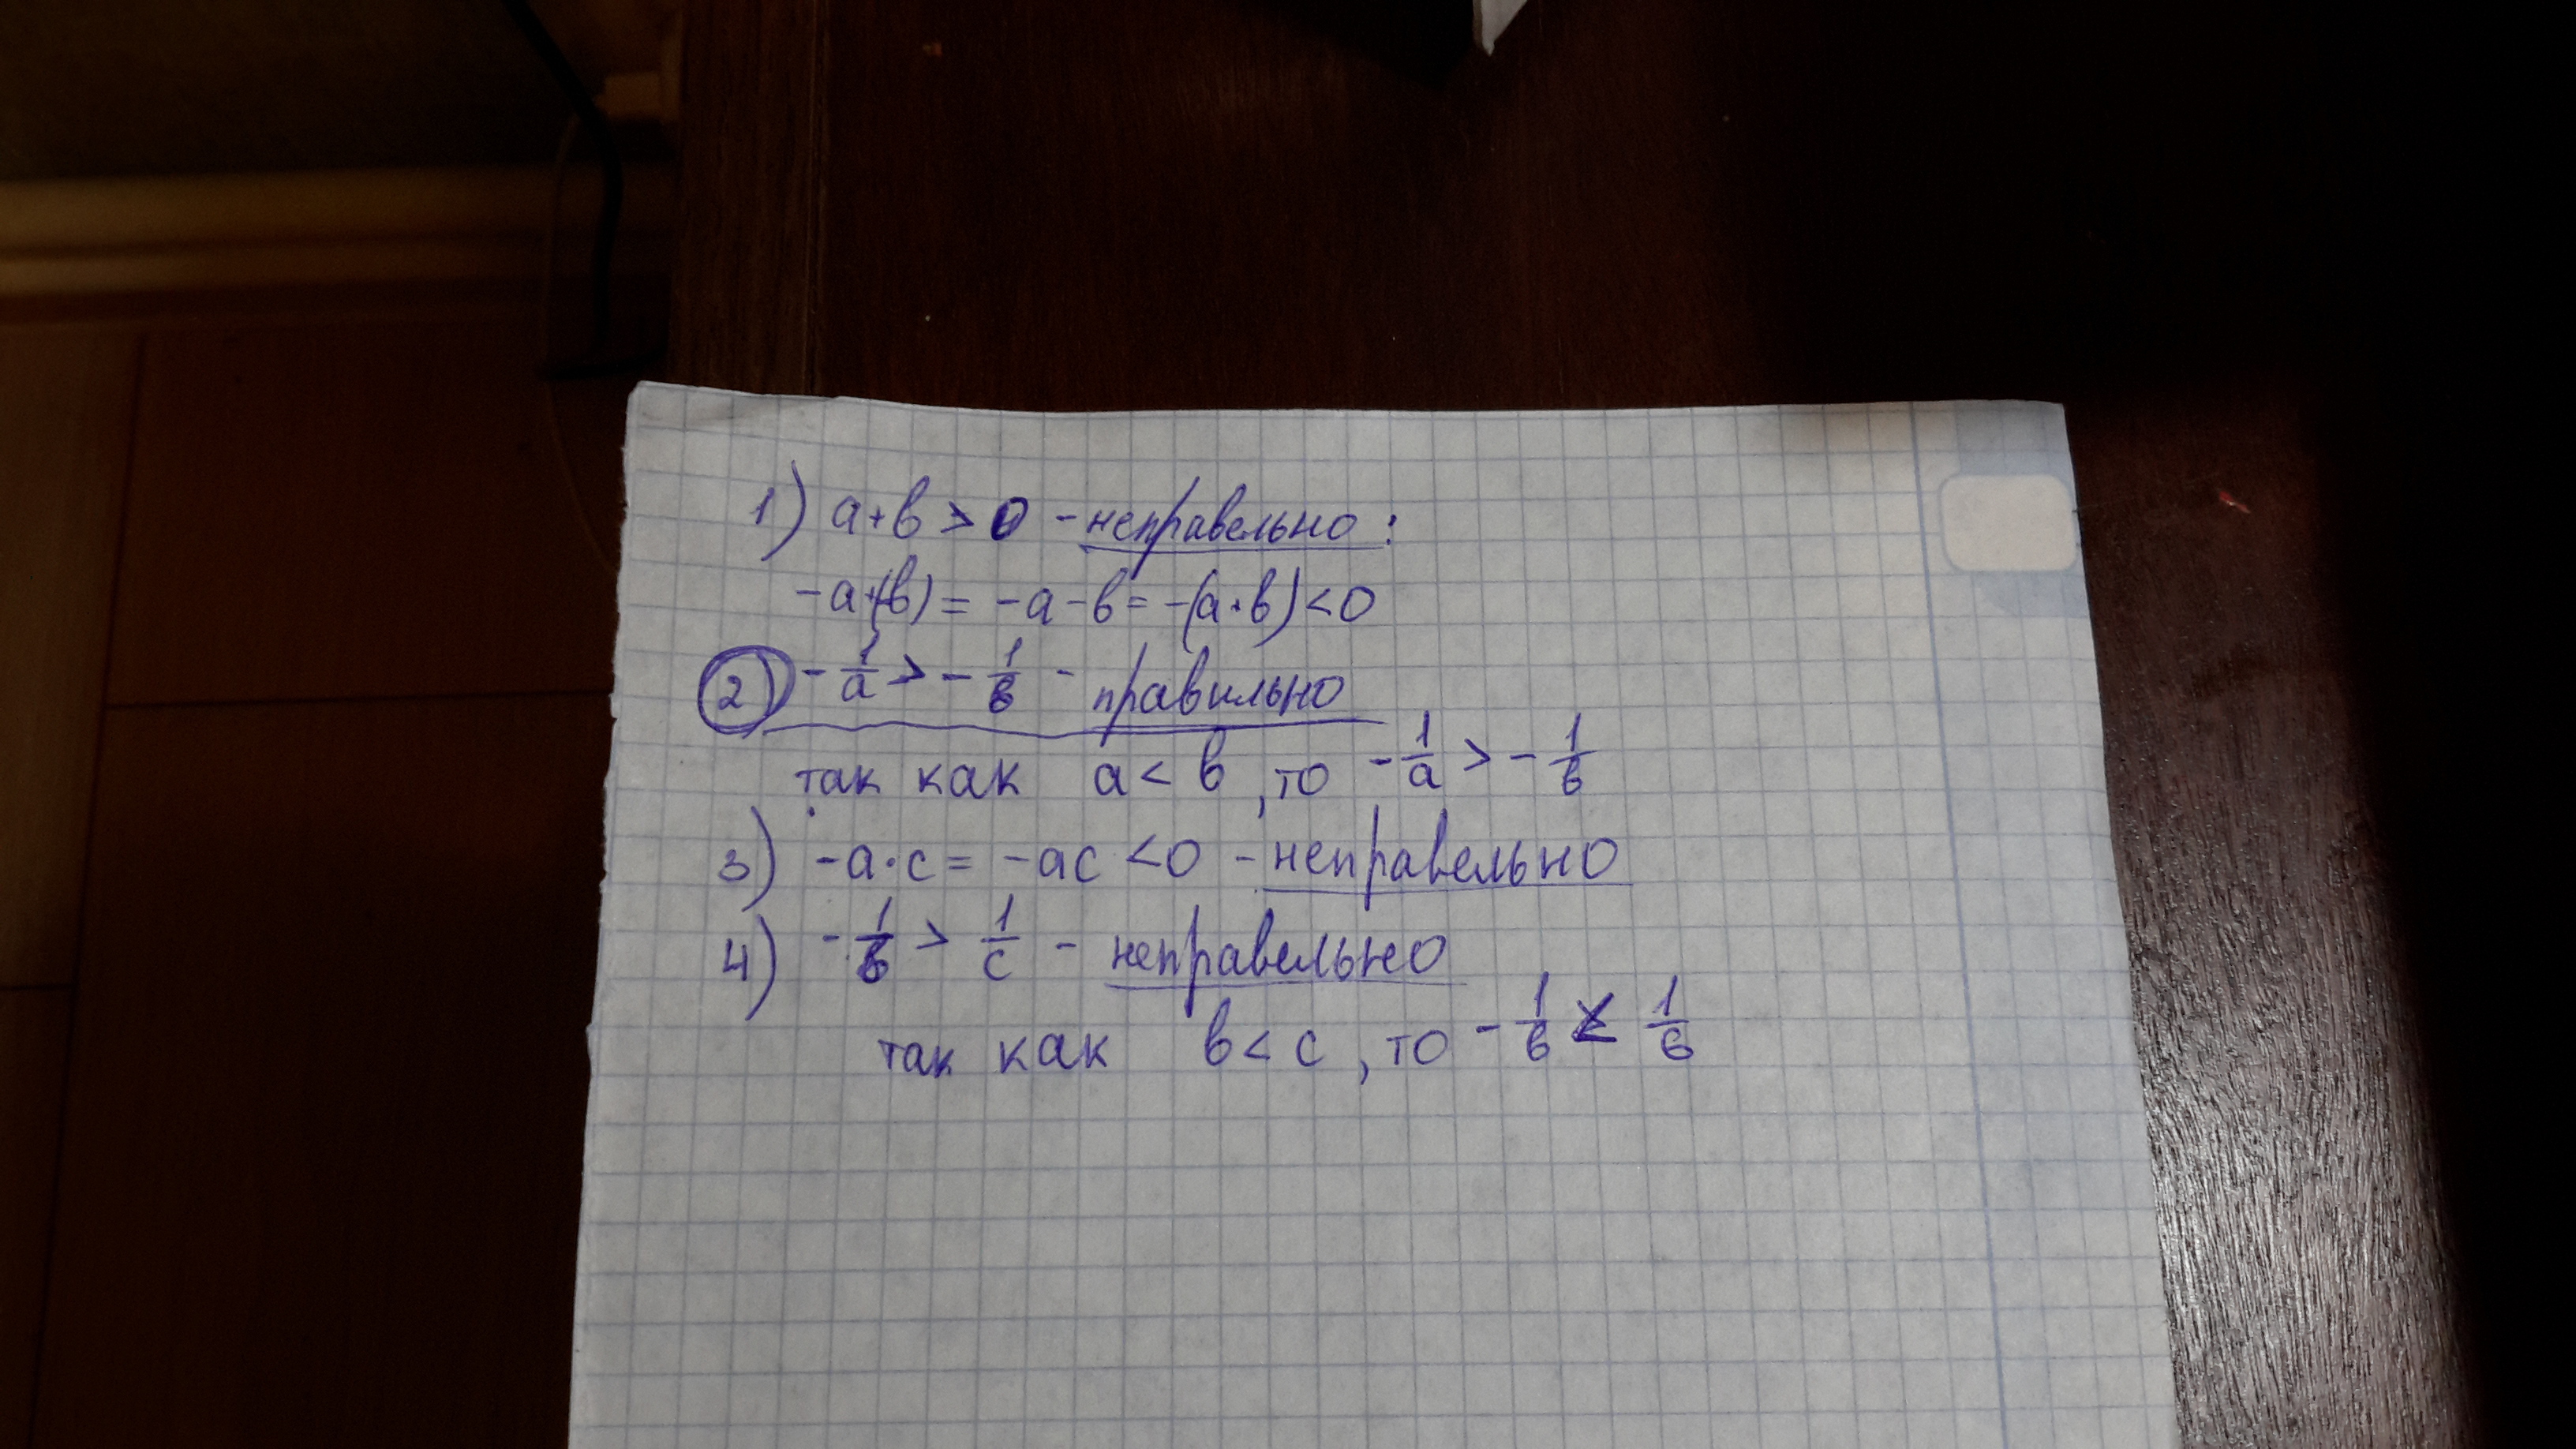 1) а+в > 0 - неправельно:
-а+(-в) = -а-в = -(а+в) < 0
2) -1/а > -1/в - правильно
так как а < в, то -1/а > -1/в
3) -а·с = -ас < 0 - неправельно
4) -1/в > 1/с - неправельно
так как в < с, то -1/в < 1/в